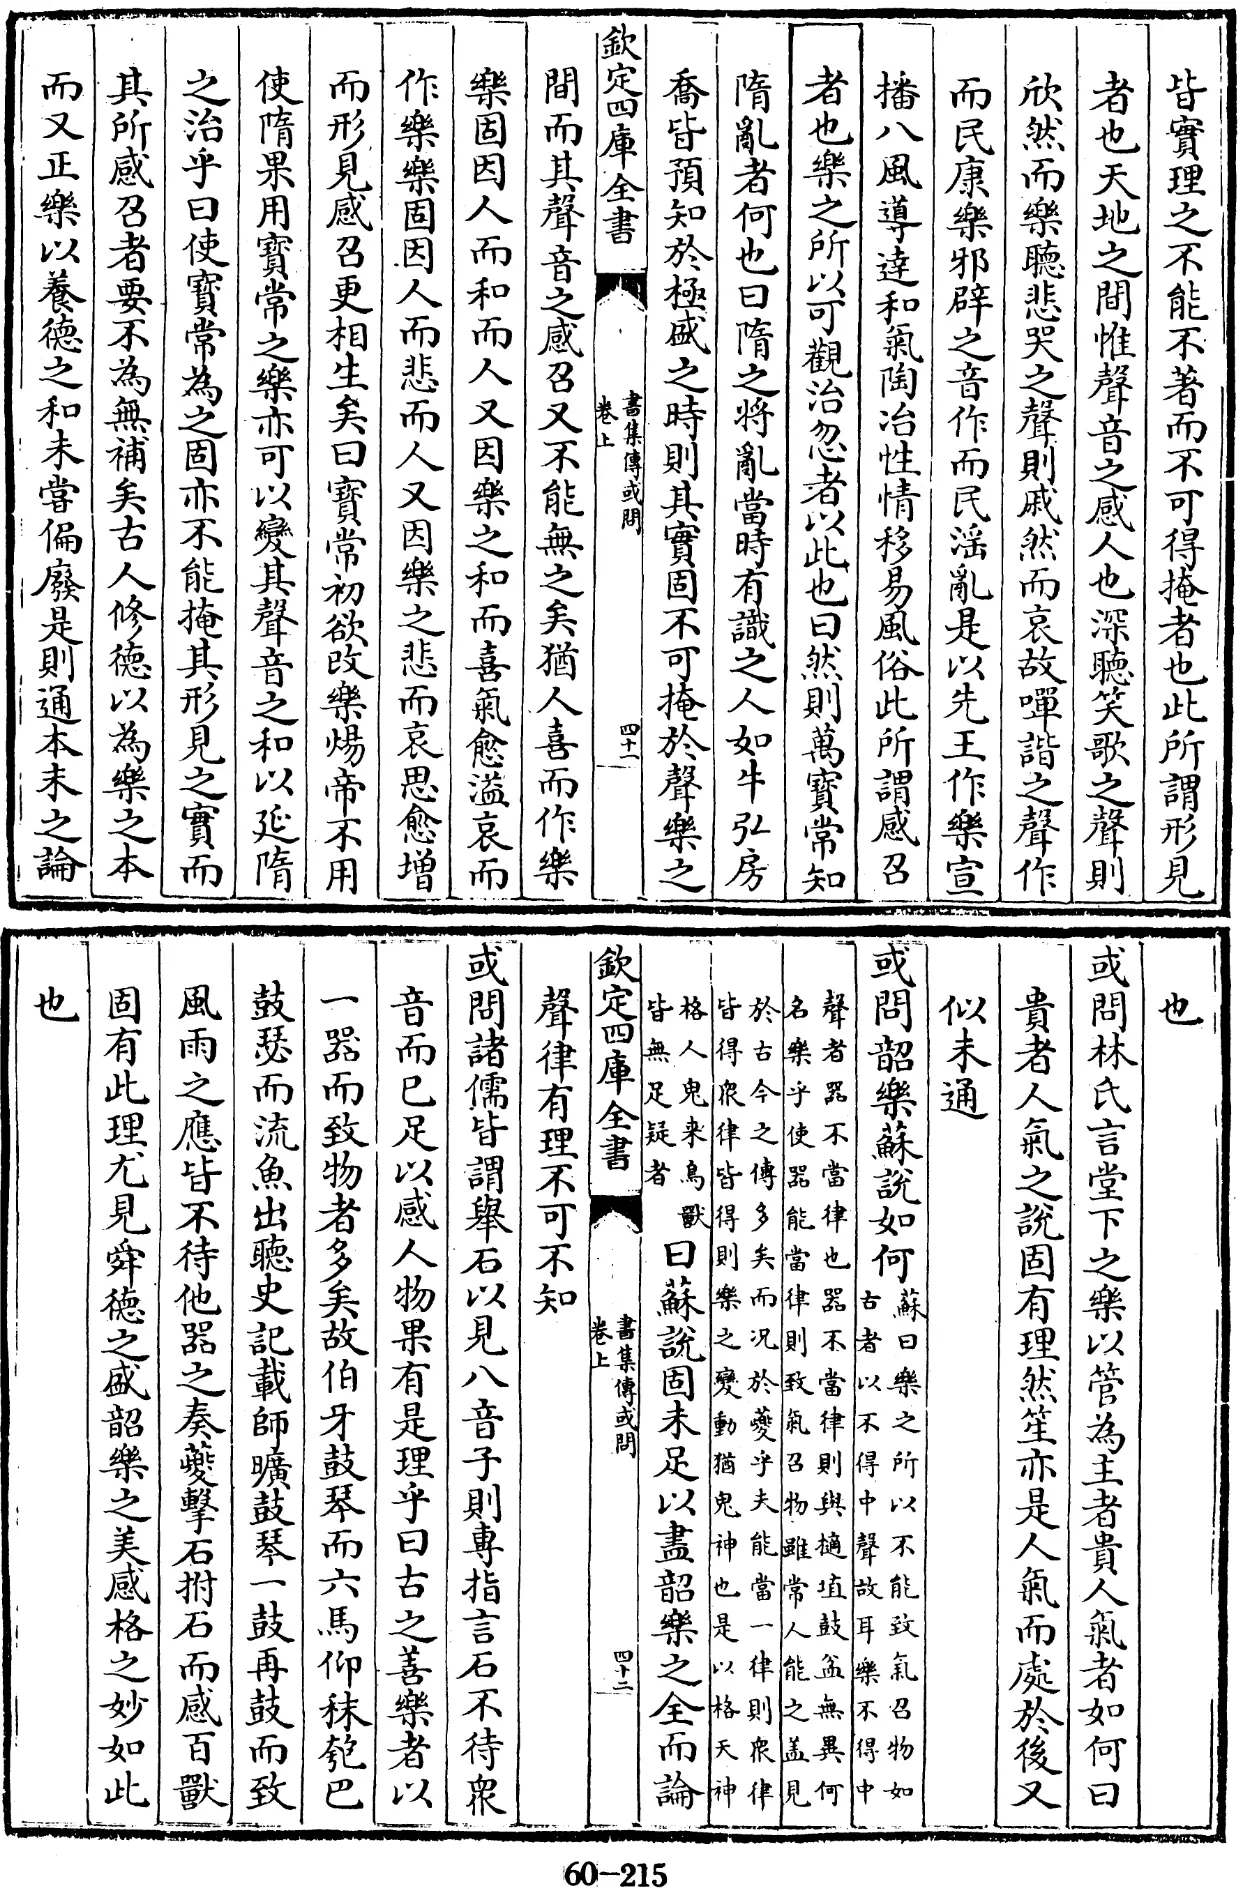 皆實理之不能不著而不可得掩者也此所謂形見
者也天地之間惟聲音之感人也深聽笑歌之聲則
欣然而樂聽悲哭之聲則戚然而哀故嘽諧之聲作
而民康樂邪辟之音作而民淫亂是以先王作樂宣
播八風導達和氣陶冶性情移易風俗此所謂感召
者也樂之所以可觀治忽者以此也曰然則萬寶常知
隋亂者何也曰隋之將亂當時有識之人如牛弘房
喬皆預知於極盛之時則其實固不可掩於聲樂之
欽定四庫全書
書集傳或問
卷上
四十一
間而其聲音之感召又不能無之矣猶人喜而作樂
樂固因人而和而人又因樂之和而喜氣愈溢哀而
作樂樂固因人而悲而人又因樂之悲而哀思愈增
而形見感召更相生矣曰寶常初欲改樂煬帝不用
使隋果用寶常之樂亦可以變其聲音之和以延隋
之治乎曰使寶常為之固亦不能掩其形見之實而
其所感召者要不為無補矣古人修德以為樂之本
而又正樂以養德之和未嘗偏廢是則通本末之論
也
或問林氏言堂下之樂以管為主者貴人氣者如何曰
貴者人氣之說固有理然笙亦是人氣而處於後又
似未通
或問韶樂蘇說如何蘇曰樂之所以不能致氣召物如
古者以不得中聲故耳樂不得中
聲者器不當律也器不當律則與擿埴鼓盆無異何
名樂乎使器能當律則致氣召物雖常人能之盖見
於古今之傳多矣而况於夔乎夫能當一律則衆律
皆得衆律皆得則樂之變動猶鬼神也是以格天神
格人鬼来鳥獸
皆無足疑者
曰蘇說固未足以盡韶樂之全而論
欽定四庫全書
書集傳或問
卷上
四十二
聲律有理不可不知
或問諸儒皆謂舉石以見八音子則專指言石不待衆
音而已足以感人物果有是理乎曰古之善樂者以
一器而致物者多矣故伯牙鼓琴而六馬仰秣瓠巴
鼓瑟而流魚出聽史記載師曠鼓琴一鼓再鼓而致
風雨之應皆不待他器之奏夔擊石拊石而感百獸
固有此理尤見舜德之盛韶樂之美感格之妙如此
也
60-215